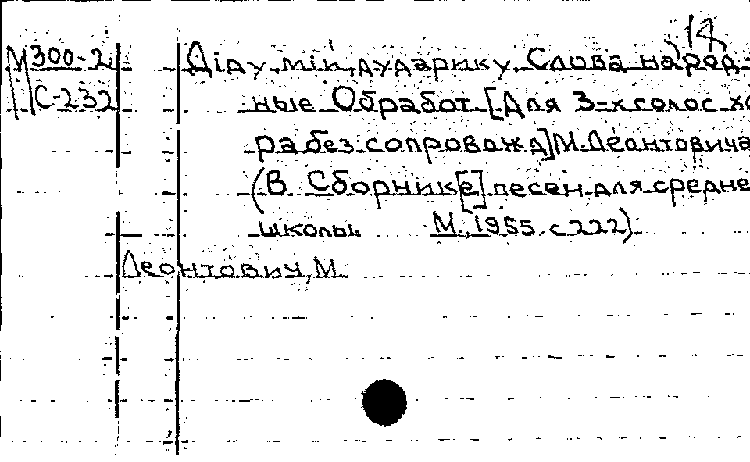 14
М300-2 Діду мій, дударику. Слова народ-
С-232 ные Обработ. [Для 3-х голос. хо
ра без сопровожд] М. Леонтовича
(В Сборник[е] песен для средне
школы. М., 1955. с 222)
Леонтович, М.